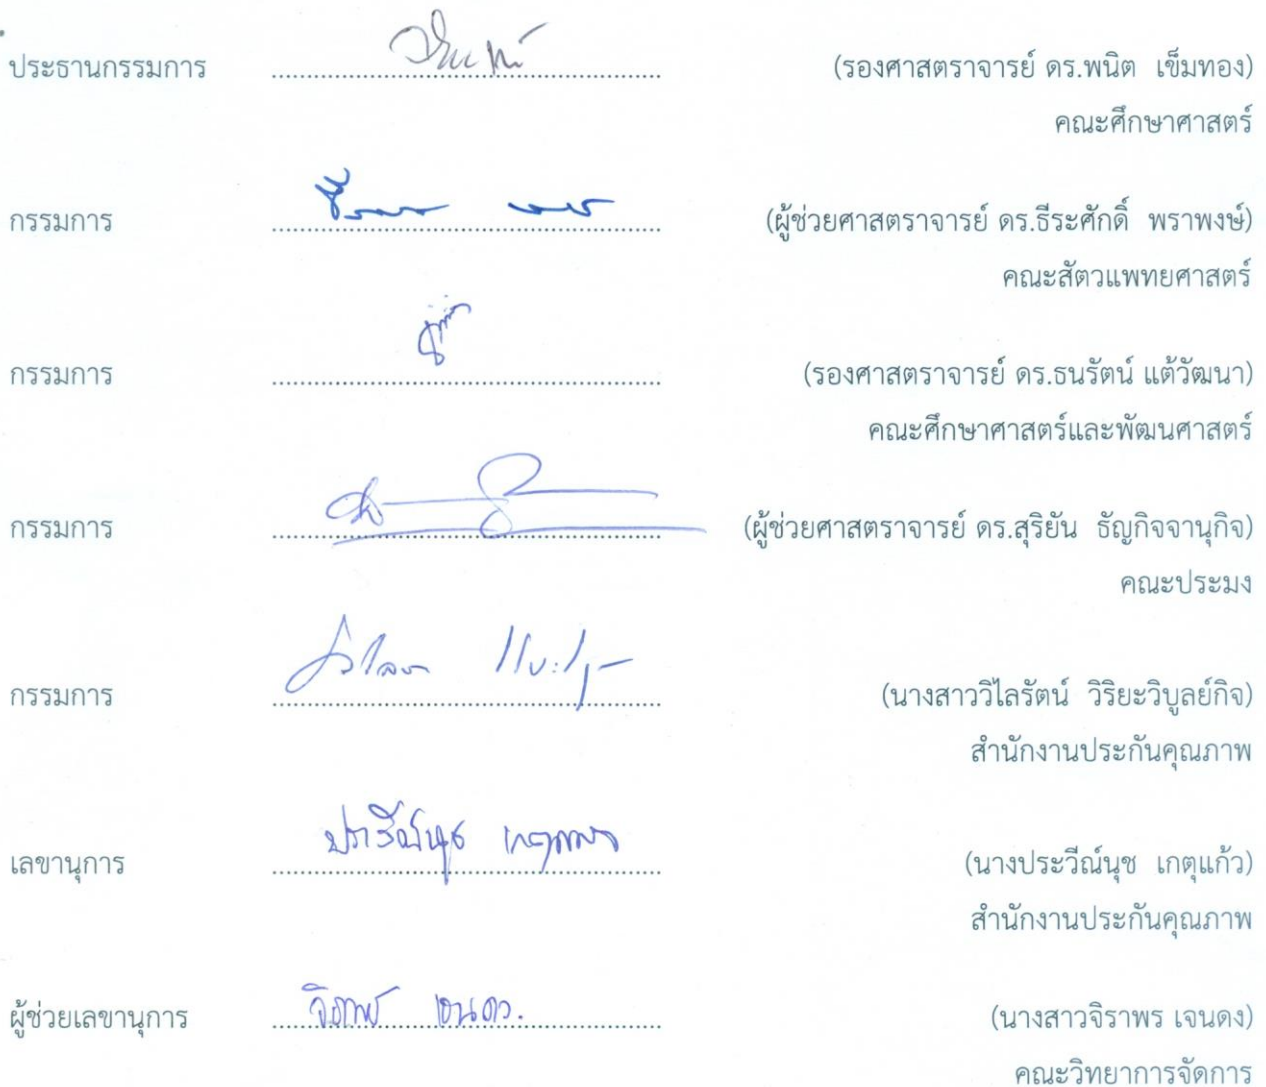 ประธานกรรมการ ............................................................ (รองศาสตราจารย์ ดร.พนิต เข็มทอง)
คณะศึกษาศาสตร์
กรรมการ ............................................................ (ผู้ช่วยศาสตราจารย์ ดร.ธีระศักดิ์ พราพงษ์)
คณะสัตวแพทยศาสตร์
กรรมการ ............................................................ (รองศาสตราจารย์ ดร.ธนรัตน์ แต้วัฒนา)
คณะศึกษาศาสตร์และพัฒนศาสตร์
กรรมการ ............................................................ (ผู้ช่วยศาสตราจารย์ ดร.สุริยัน ธัญกิจจานุกิจ)
คณะประมง
กรรมการ ............................................................ (นางสาววิไลรัตน์ วิริยะวิบูลย์กิจ)
สำนักงานประกันคุณภาพ
เลขานุการ ............................................................ (นางประวีณ์นุช เกตุแก้ว)
สำนักงานประกันคุณภาพ
ผู้ช่วยเลขานุการ จิราพร เจนดง (นางสาวจิราพร เจนดง)
คณะวิทยาการจัดการ